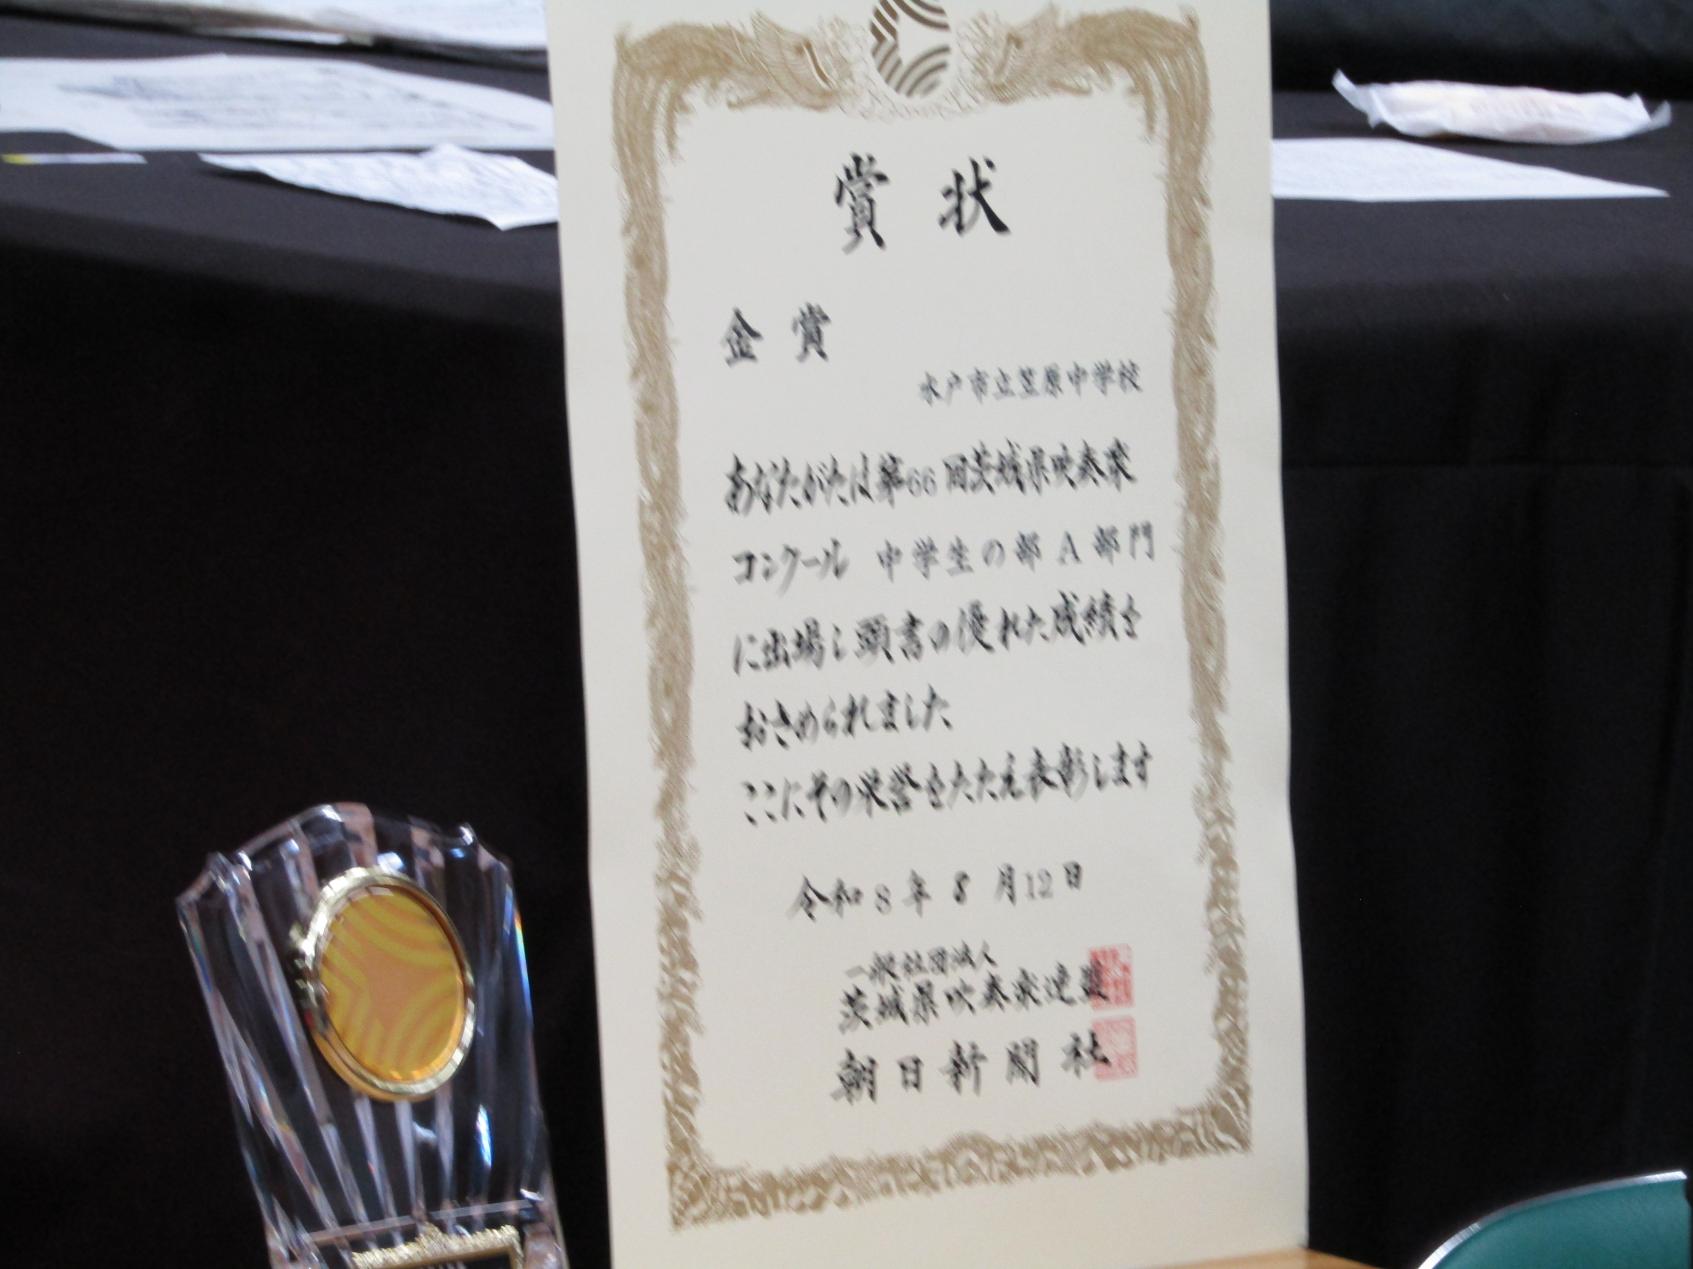 賞状
金賞
水戸市立笠原中学校
あなたがたは第66回茨城県吹奏楽
コンクール 中学生の部 A部門
に出場し頭書の優れた成績を
おさめられました
ここにその栄誉をたたえ表彰します
令和8年8月12日
一般社団法人
茨城県吹奏楽連盟
朝日新聞社